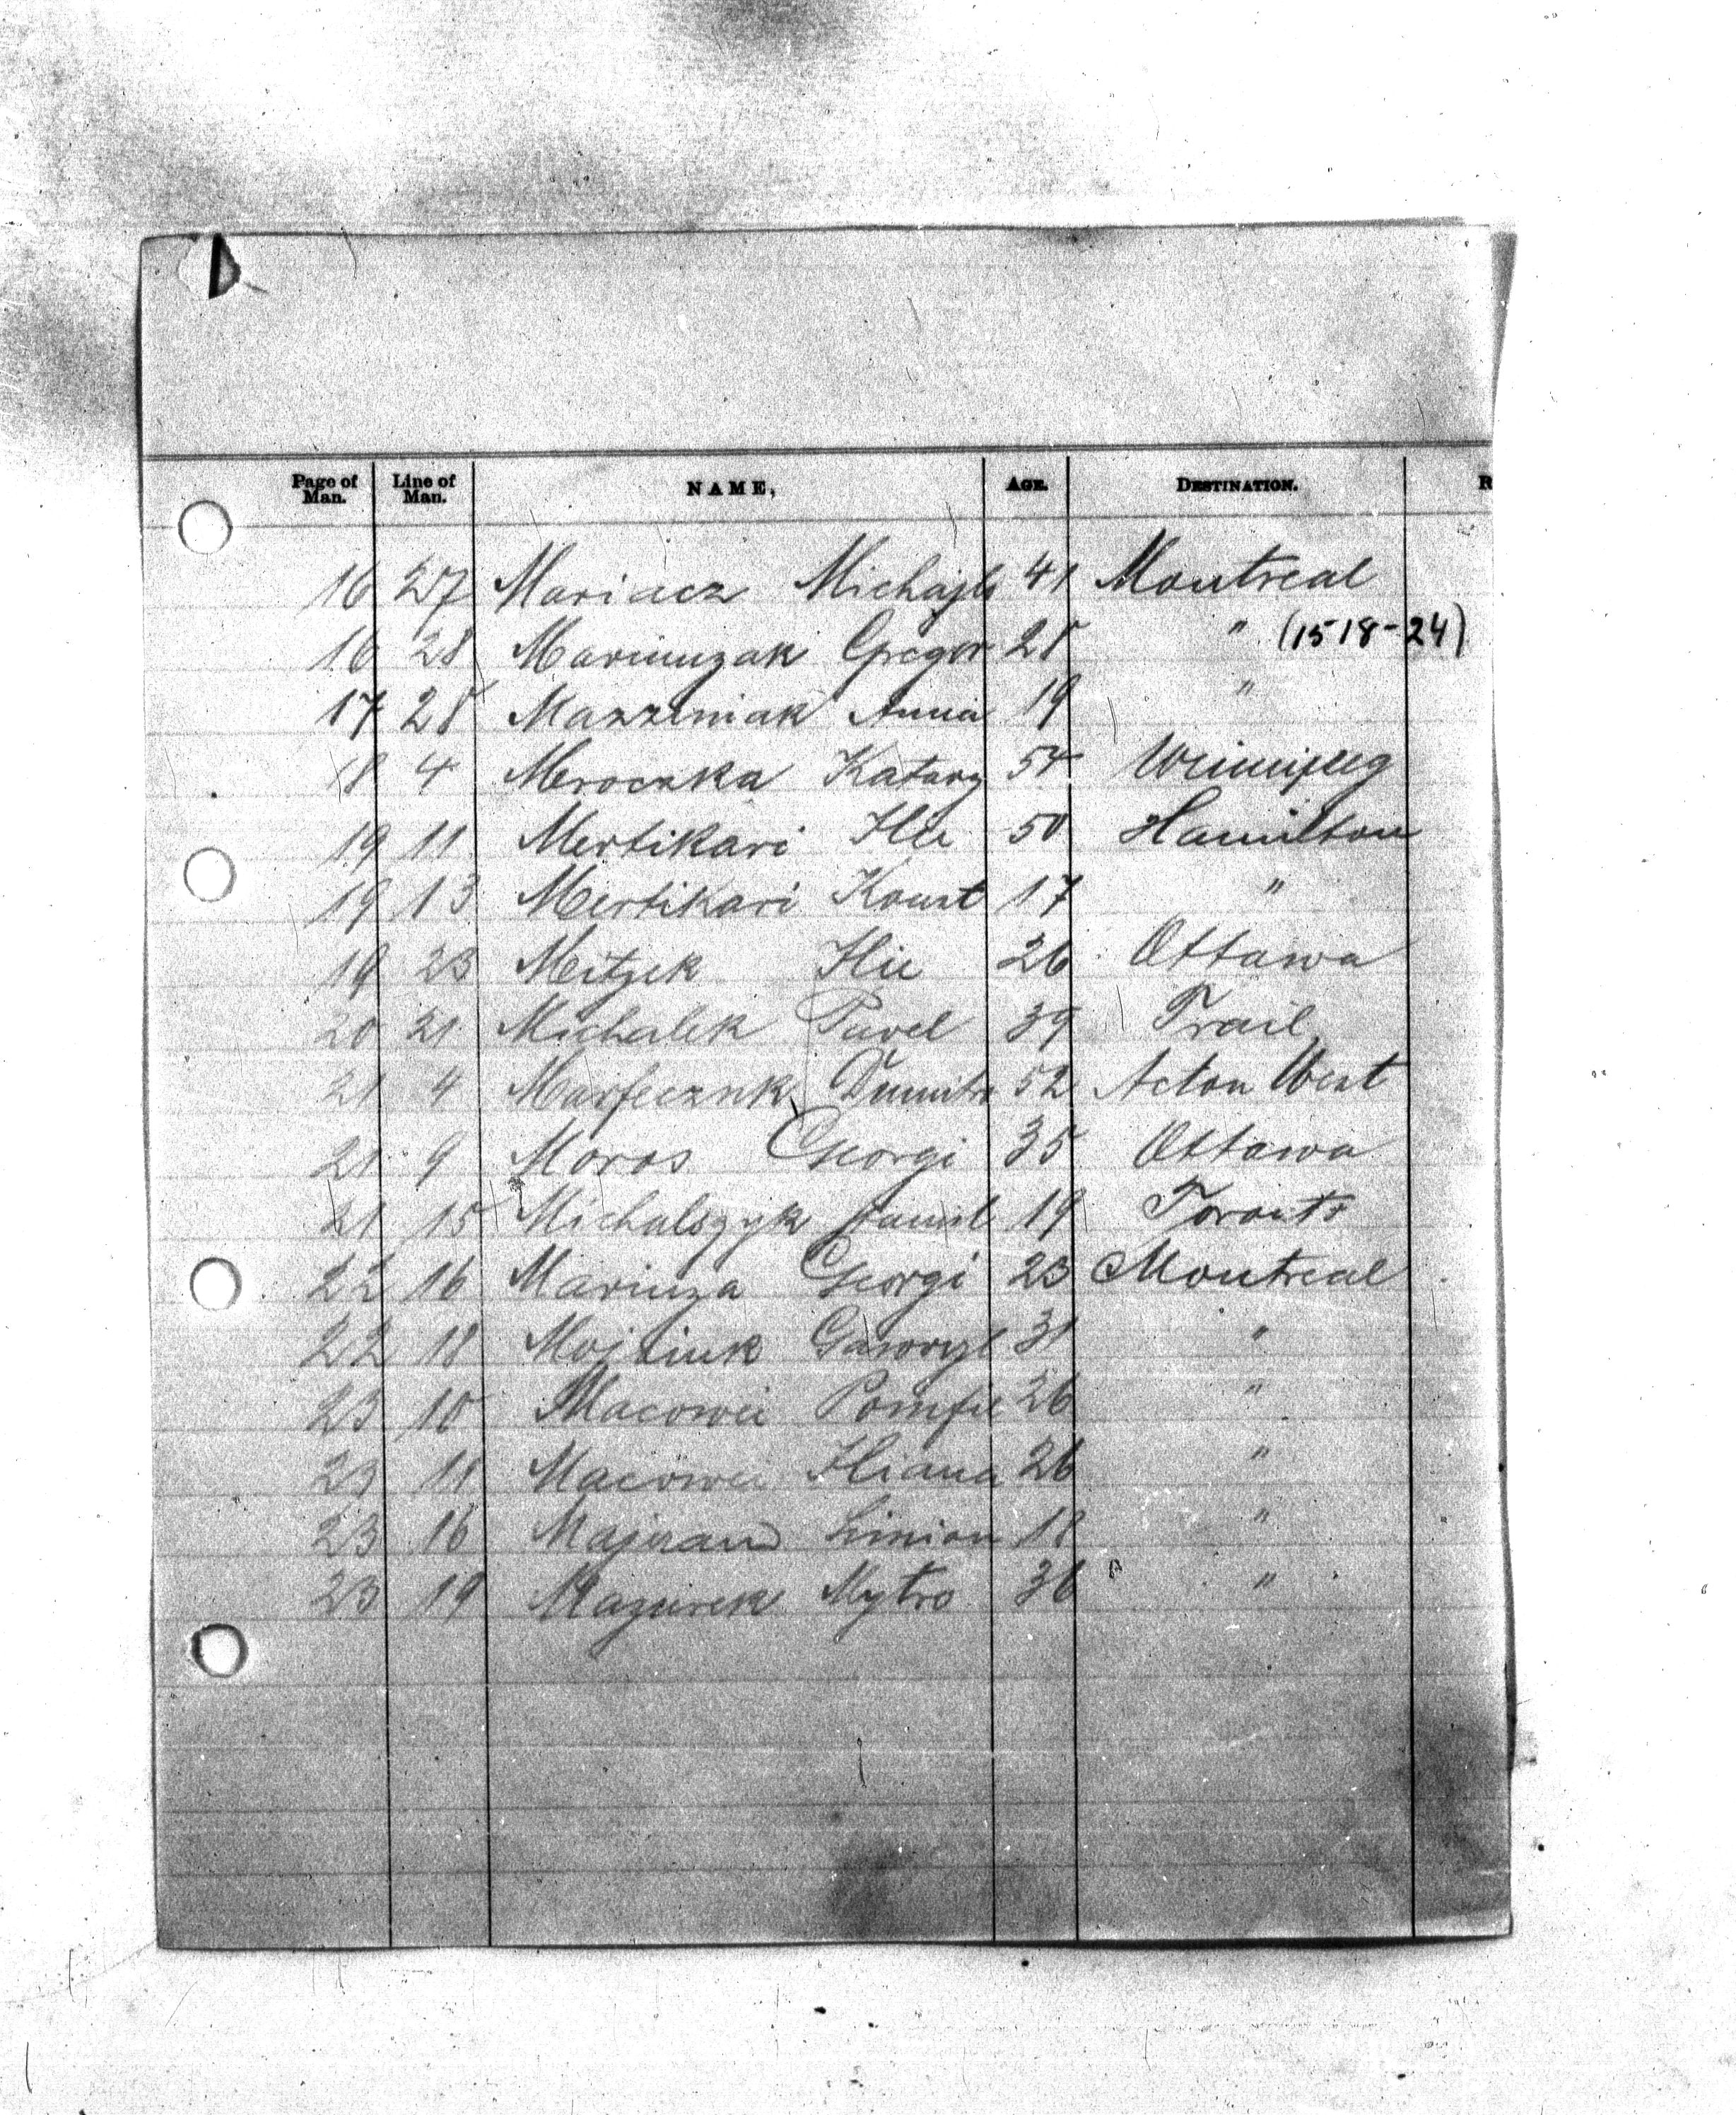 Page of Man. Line of Man. NAME, AGE. DESTINATION. R
16 27 Mariacz Michajlo 41 Montreal
16 28 Gregor 28 " (15 18-24)
17 28 Mazzeniak Anna 19 "
18 4 Mroczka Katarz 54 Winnipeg
19 11 Mertikari Ilie 50 Hamilton
19 13 Mertikari Konst 17 "
19 23 Mitzek Ilie 26 Ottawa
20 21 Michalek Pavel 39 Trail
21 4 Dumitr 52 Acton West
21 9 Moros Georgi 35 Ottawa
21 15 Michalszyk 19 Toronto
22 16 Mariuza Georgi 23 Montreal
22 18 Gawryl 31 "
23 10 Macowei Pomfie 26 "
23 11 Macowei Iliana 26 "
23 16 Simion 18 "
23 19 Mazurek Mytro 36 "